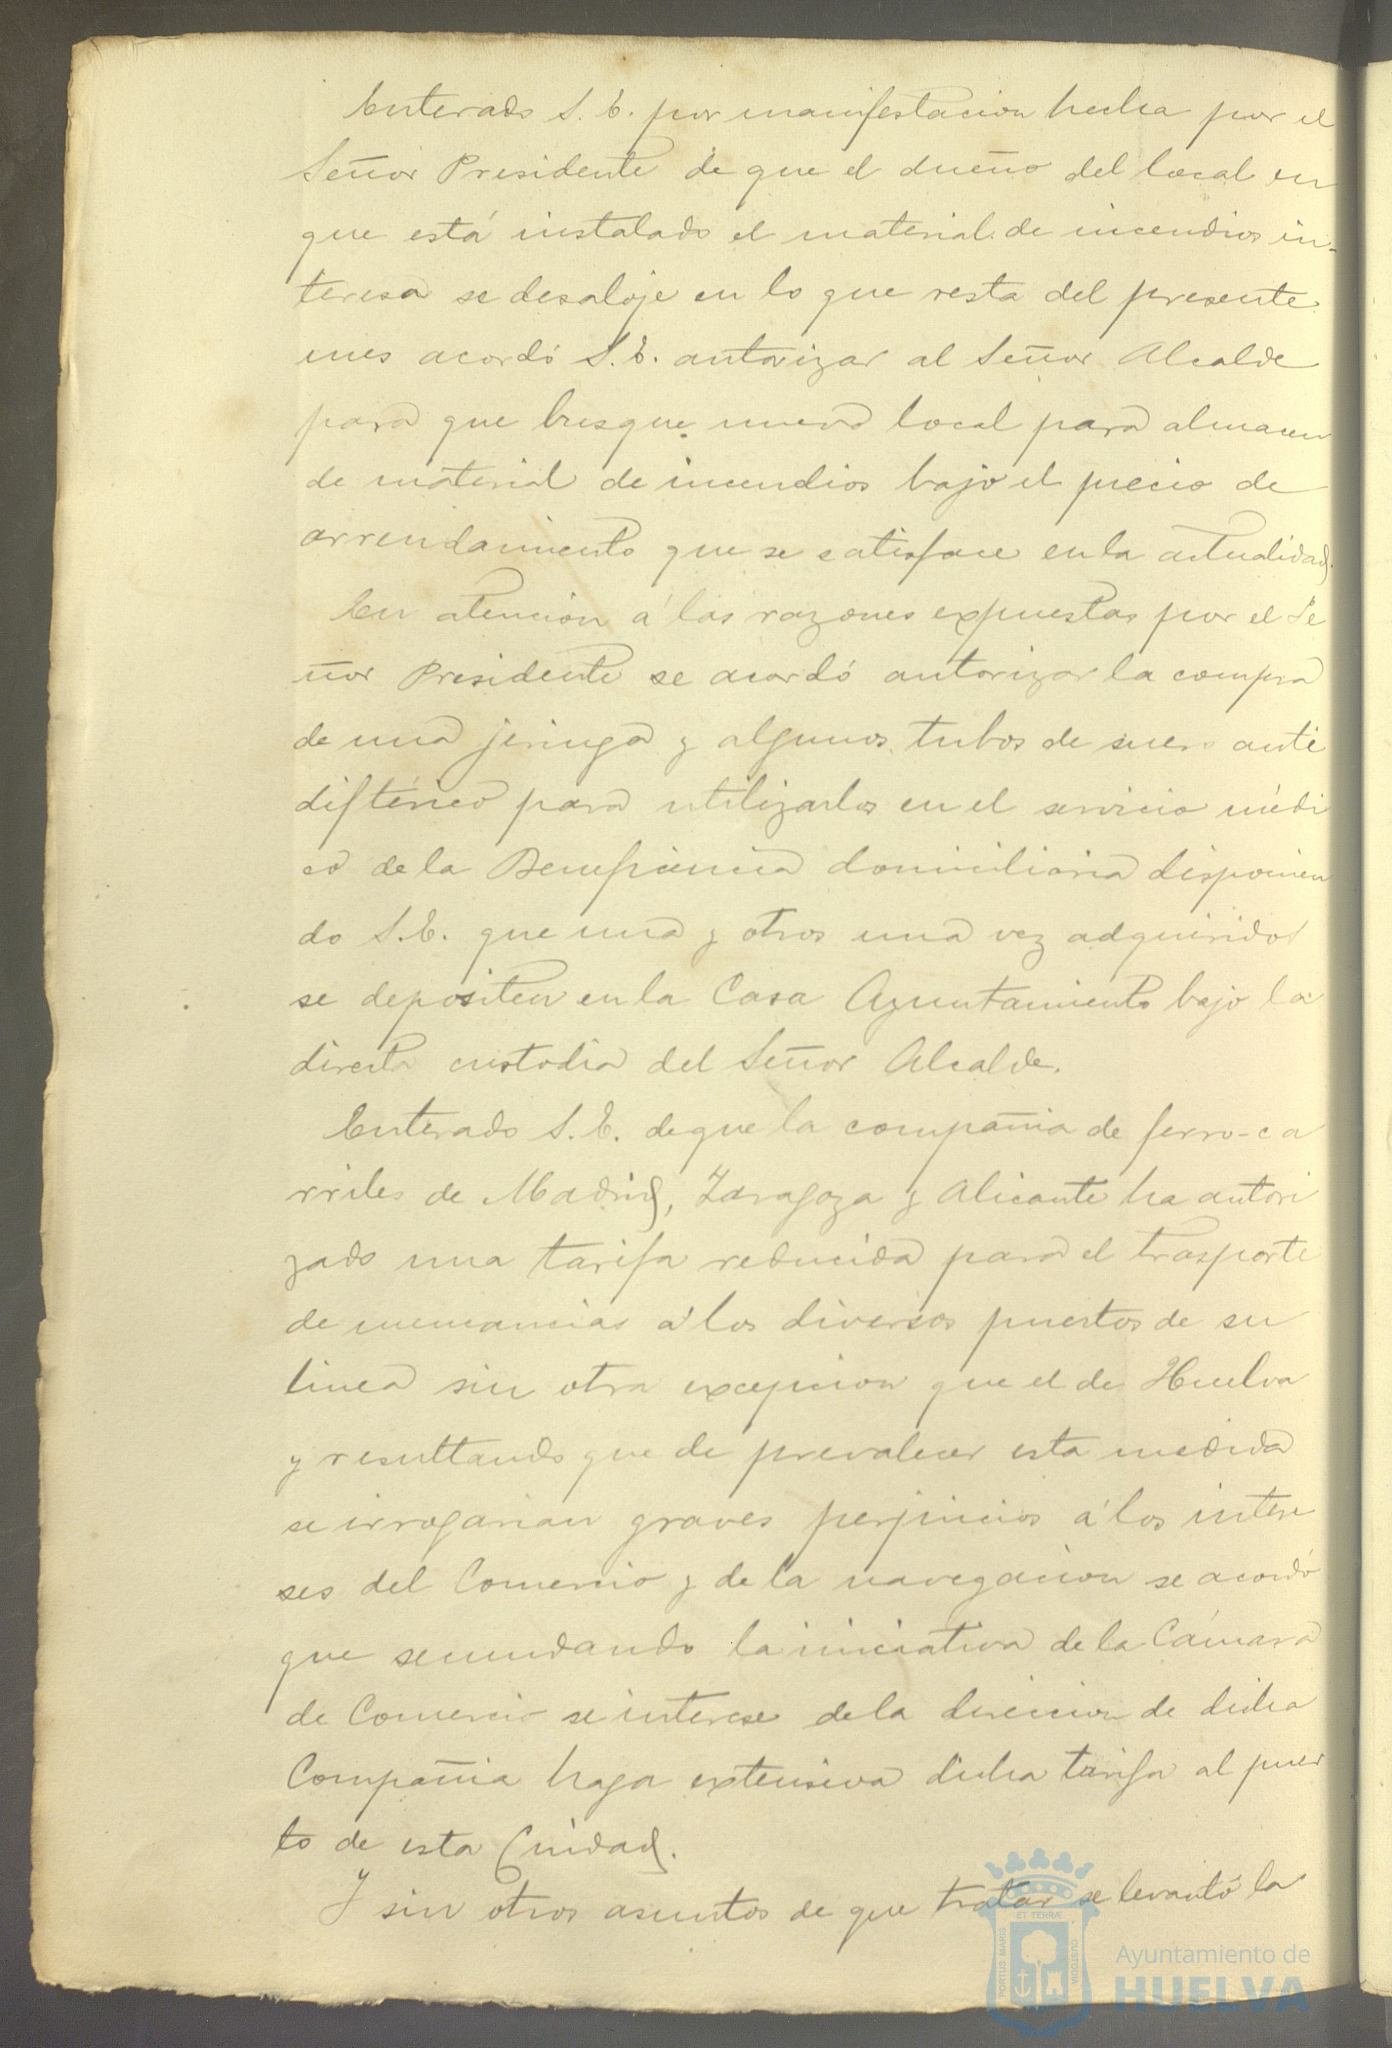 Enterado S. E. por manifestacion hecha por el
Señor Presidente de que el dueño del local en
que está instalado el material de incendios in-
teresa se desaloje en lo que resta del presente
mes acordó S. E. autorizar al Señor Alcalde
para que busque nuevo local para almacen
de material de incendios bajo el precio de
arrendamiento que se satisface en la actualidad.
En atención á las razones expuestas por el Se
ñor Presidente se acordó autorizar la compra
de una jeringa y algunos tubos de suero anti
diftérico para utilizarlos en el servicio médi
co de la Beneficencia domiciliaria disponien
do S. E. que una y otros una vez adquiridos
se depositen en la Casa Ayuntamiento bajo la
directa custodia del Señor Alcalde.
Enterado S. E. de que la compañia de ferro-ca
rriles de Madrid, Zaragoza y Alicante ha autori
zado una tarifa reducida para el trasporte
de mercancias á los diversos puertos de su
linea sin otra excepcion que el de Huelva
y resultando que de prevalecer esta medida
se irrogarian graves perjuicios á los intere
ses del Comercio y de la navegacion se acordó
que secundando la iniciativa de la Cámara
de Comercio se interese de la direccion de dicha
Compañia haga extensiva dicha tarifa al puer
to de esta Ciudad.
Y sin otros asuntos de que tratar se levantó la
PORTUS MARIS
ET TERRÆ
CUSTODIA
Ayuntamiento de
HUELVA